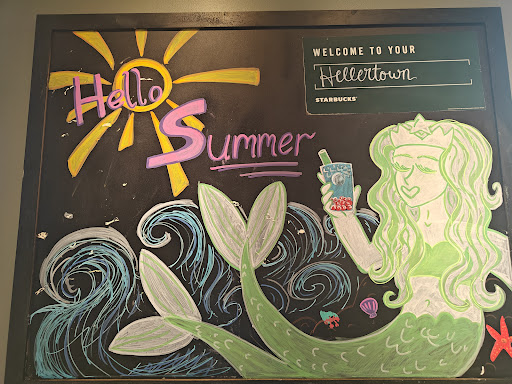 Hello
Summer
WELCOME TO YOUR
Hellertown
STARBUCKS